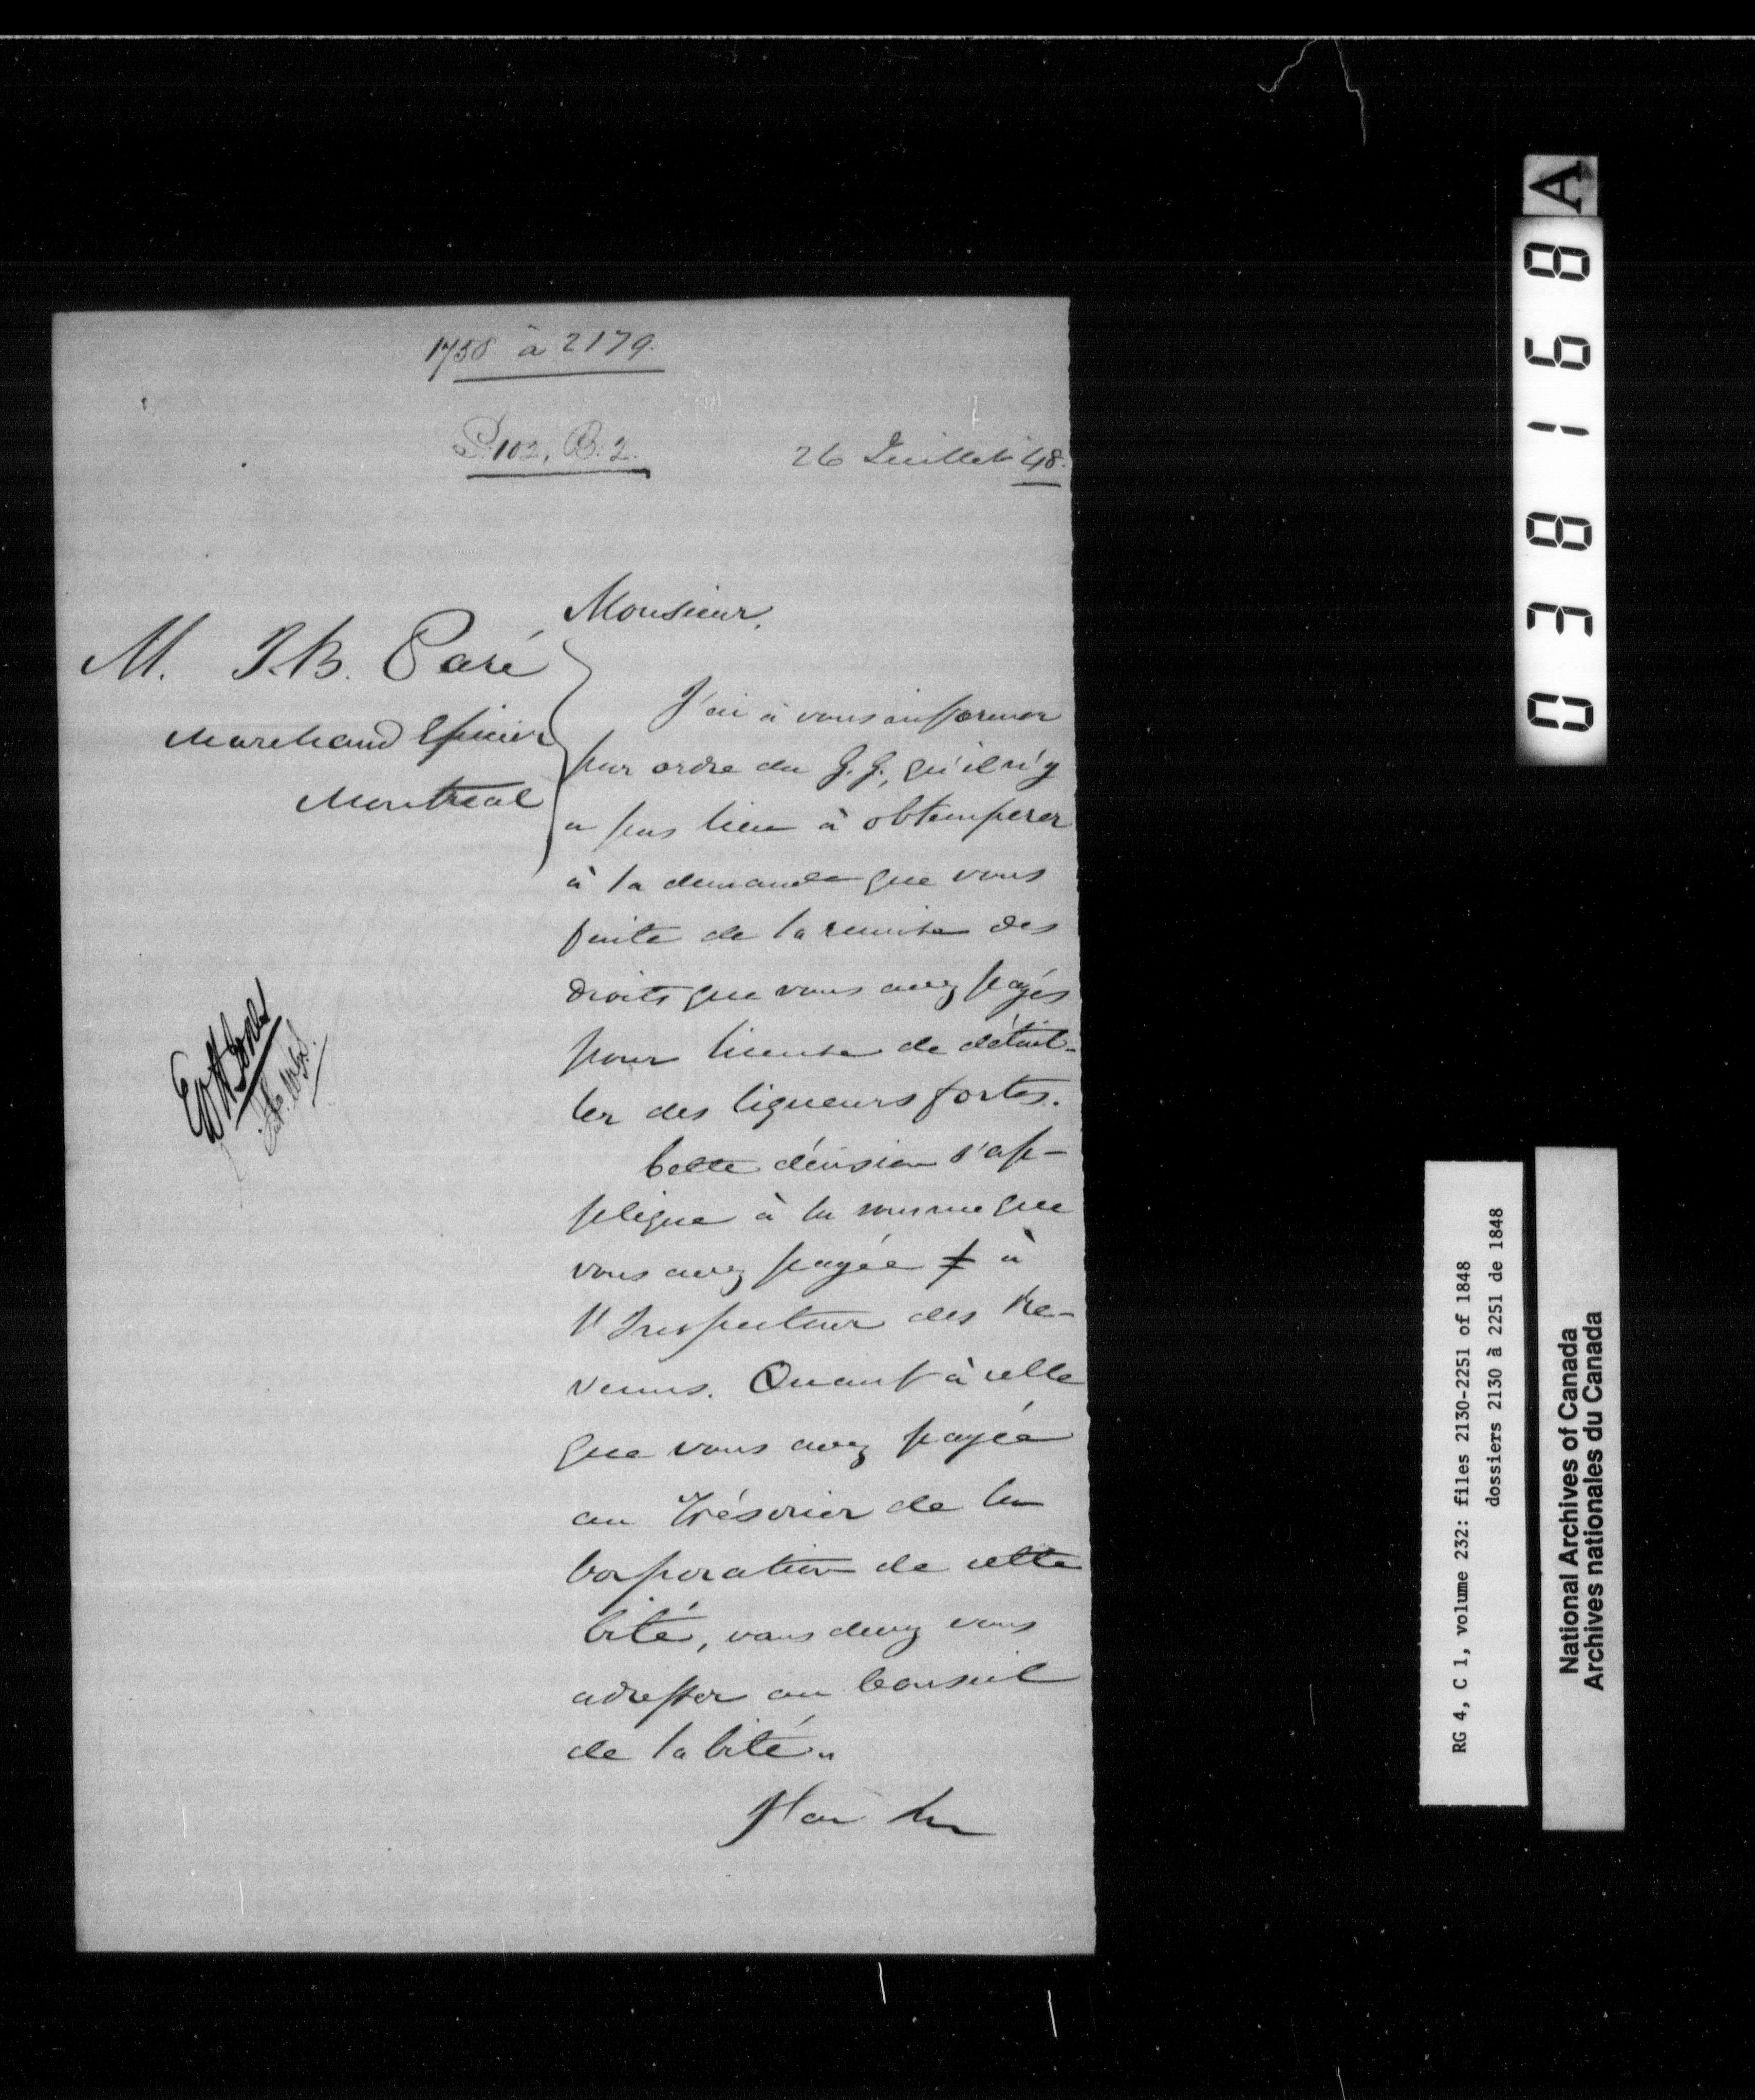 1758 à 2179.
P. 102, B. 2.
26 Juillet 48.
Monsieur,
M. J.B. Paré
Marchand Epicier
Montreal
J'ai à vous informer
par ordre du G. G., qu'il n'y
a pas lieu à obtemperer
à la demande que vous
faite de la remise des
droits que vous avez payés
pour license de détail-
ler des liqueurs fortes.
Cette décision s'ap-
plique à la somme que
vous avez payée à
l'Inspecteur des Re-
venus. Quant à celle
que vous avez payée
au Trésorier de la
Corporation de cette
Cité, vous devez vous
adresser au Conseil
de la Cité.
J'ai
0 3 8 1 6 8 A
RG 4, C 1, volume 232: files 2130-2251 of 1848
dossiers 2130 à 2251 de 1848
National Archives of Canada
Archives nationales du Canada